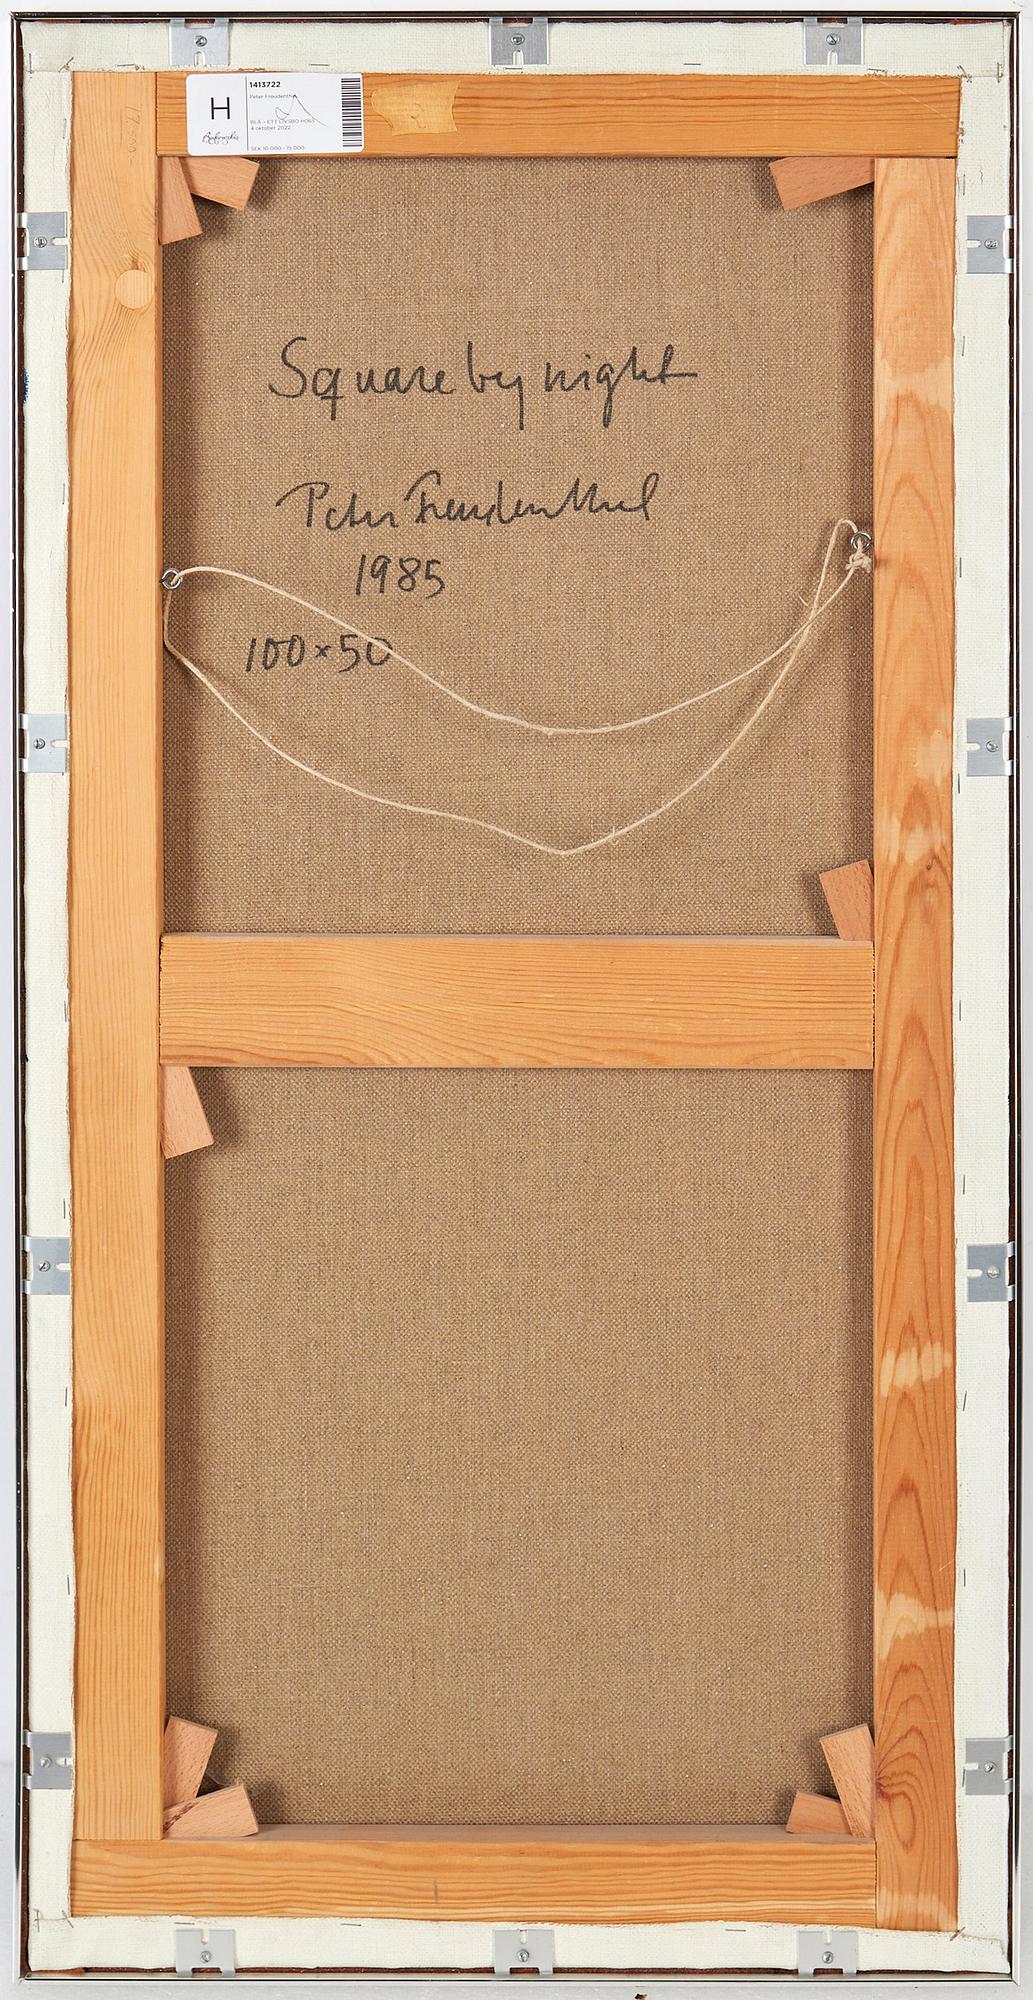 H
1413722
Peter Freudenthal
BLÅ - ETT LIVSBO H065
4 oktober 2022
Bukowskis
SEK 10 000 - 15 000
Square by night
Peter Freudenthal
1985
100×50